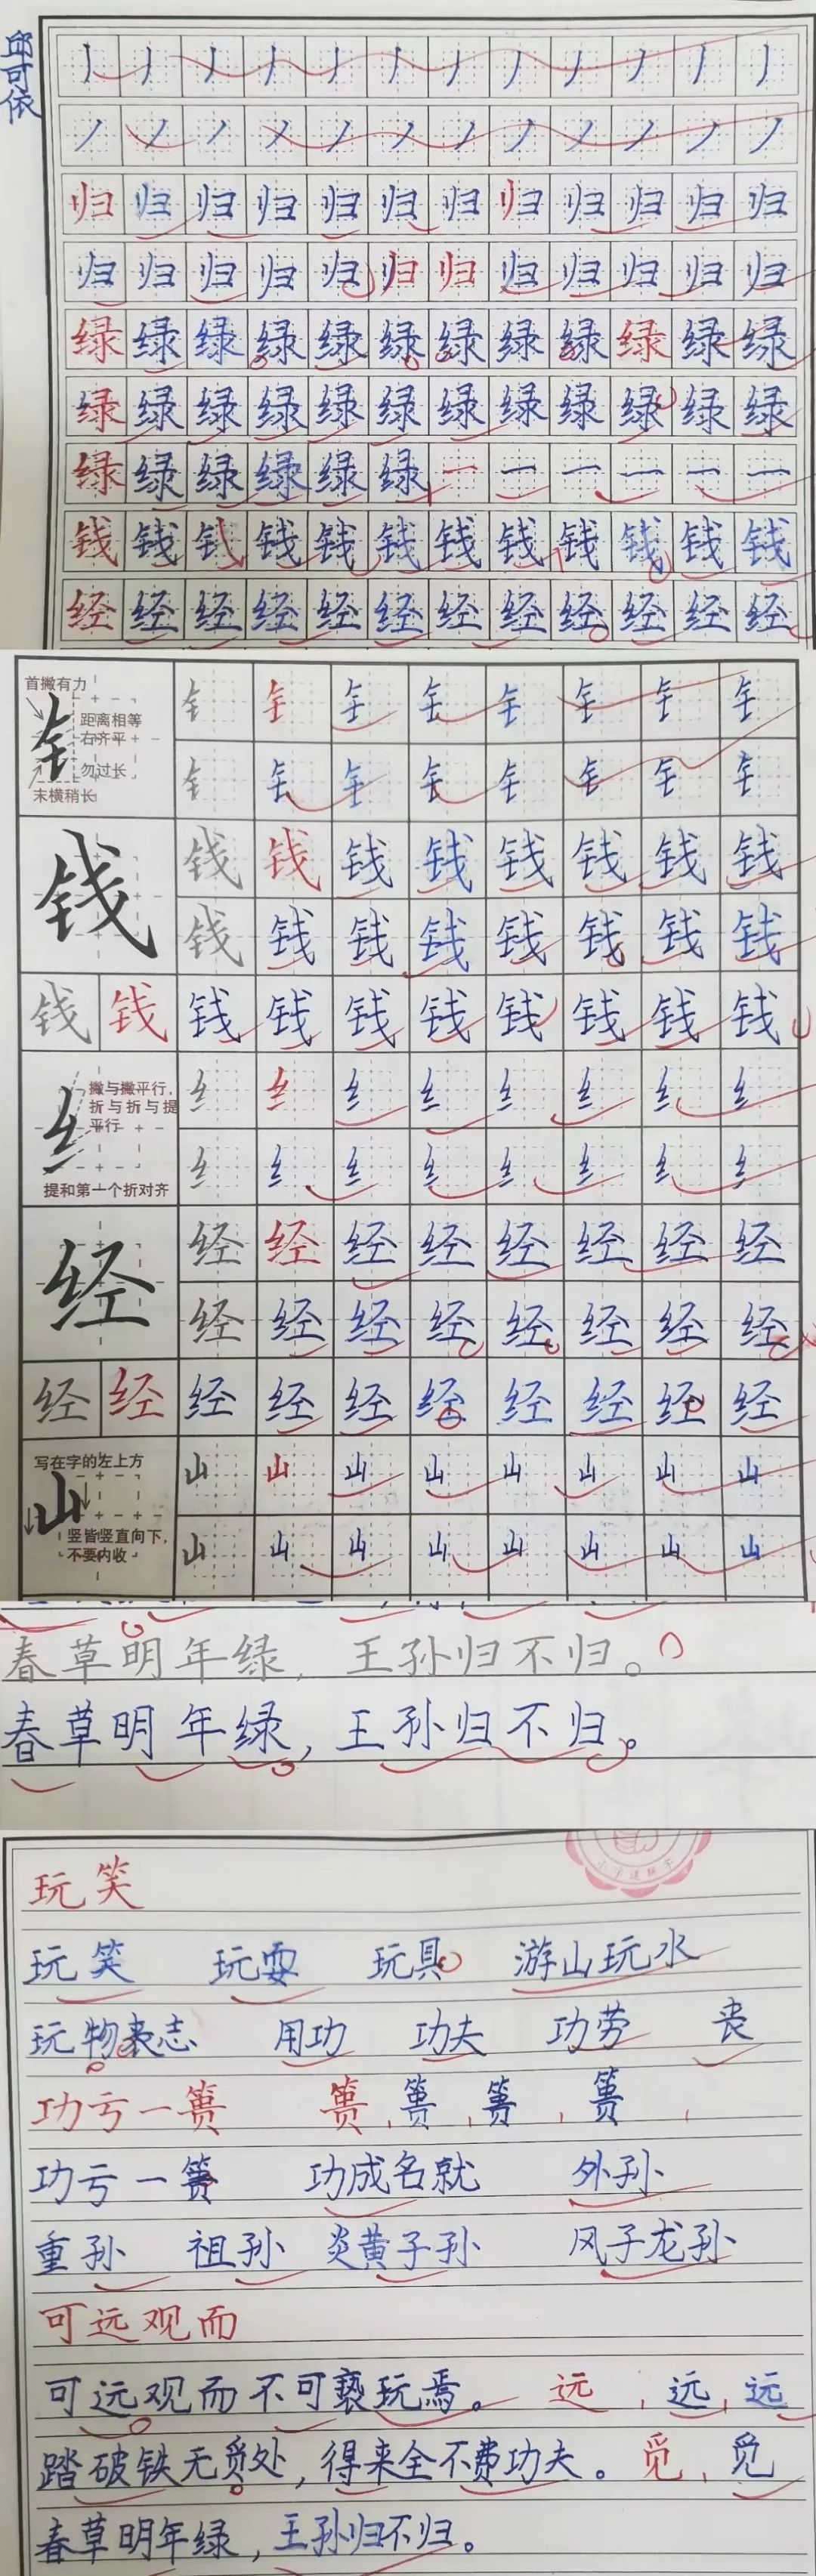 邱可依
丿丿丿丿丿丿丿丿丿丿丿丿
丿丿丿丿丿丿丿丿丿丿丿丿
归归归归归归归归归归归归
归归归归归归归归归归归归
绿绿绿绿绿绿绿绿绿绿绿绿
绿绿绿绿绿绿绿绿绿绿绿绿
绿绿绿绿绿绿一一一一一一
钱钱钱钱钱钱钱钱钱钱钱钱
经经经经经经经经经经经经
首撇有力
距离相等
右齐平
勿过长
末横稍长
钅钅钅钅钅钅钅钅钅
钅钅钅钅钅钅钅钅
钱钱钱钱钱钱钱钱钱
钱钱钱钱钱钱钱钱
钱钱钱钱钱钱钱钱钱钱
撇与撇平行,
折与折与提
平行
提和第一个折对齐
纟纟纟纟纟纟纟纟纟
纟纟纟纟纟纟纟纟
经经经经经经经经经
经经经经经经经经
经经经经经经经经经经
写在字的左上方
竖皆竖直向下,
不要内收
山山山山山山山山山
山山山山山山山山
春草明年绿,王孙归不归。
春草明年绿,王孙归不归。
玩笑
玩笑 玩耍 玩具 游山玩水
玩物丧志 用功 功夫 功劳 丧
功亏一篑 篑 篑 篑 篑
功亏一篑 功成名就 外孙
重孙 祖孙 炎黄子孙 风子龙孙
可远观而
可远观而不可亵玩焉。 远 远 远
踏破铁无觅处,得来全不费功夫。觅 觅
春草明年绿,王孙归不归。